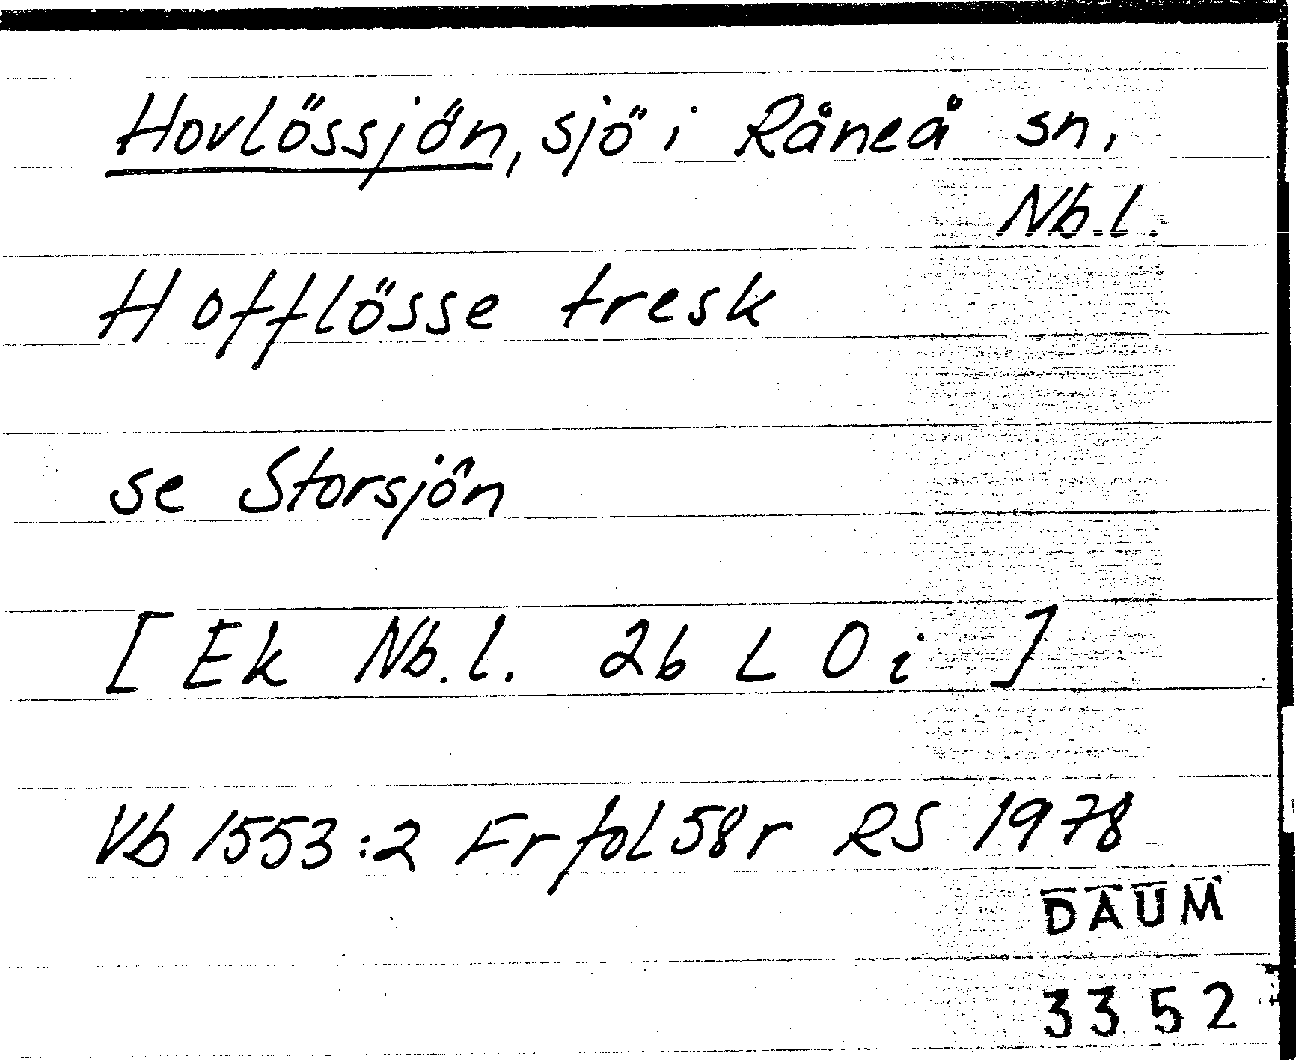 Hovlössjön, sjö i Råneå sn,
Nb.l.
Hofflösse tresk
se Storsjön
[Ek Nb.l. 26 L 0 i ]
Vb 1553:2 Fr fol 58 r RS 1978
DAUM
3352